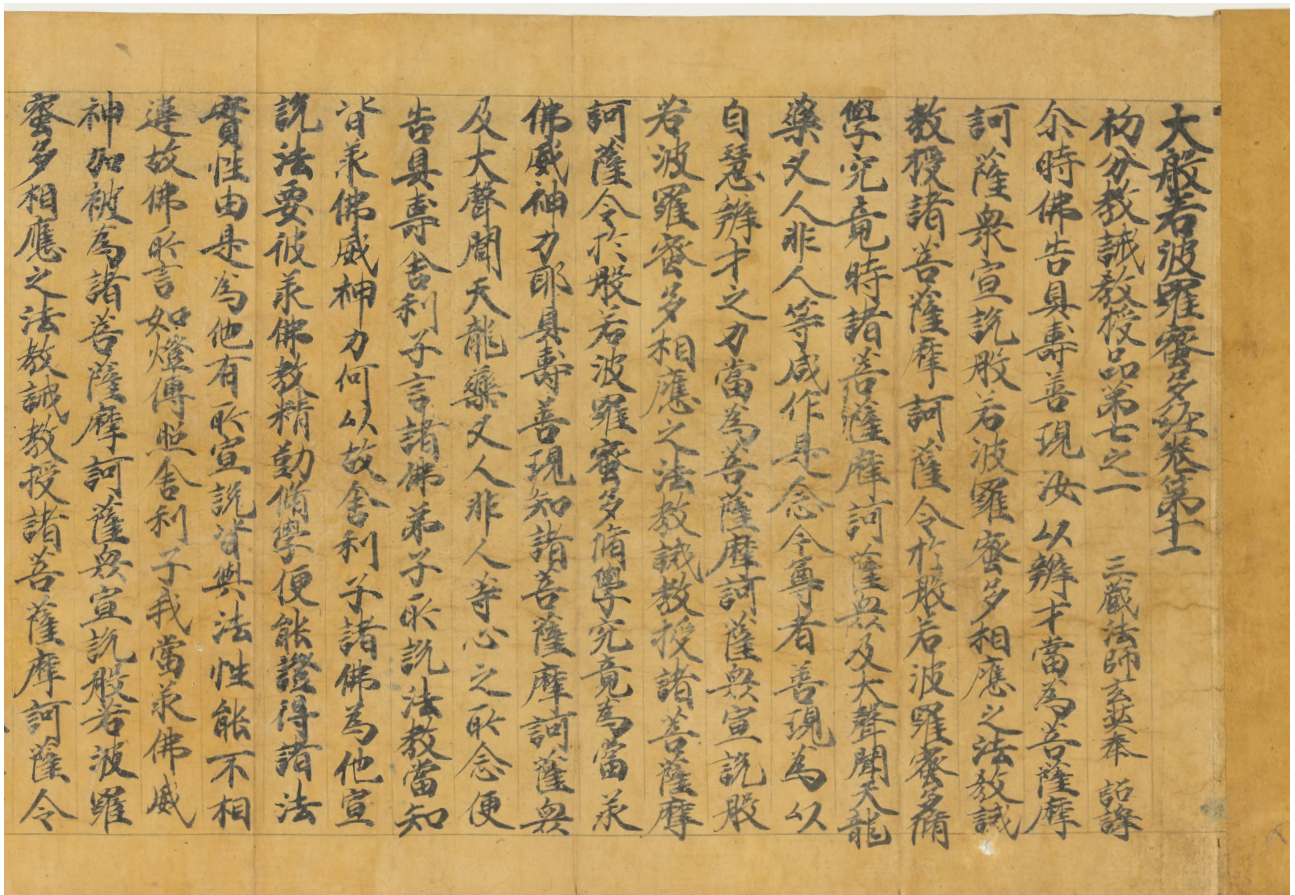 大般若波羅蜜多經卷第十一
初分教誡教授品第七之一　三藏法師玄奘奉　詔譯
尒時佛告具壽善現汝以辯才當為菩薩摩
訶薩衆宣說般若波羅蜜多相應之法教誡
教授諸菩薩摩訶薩令於般若波羅蜜多脩
學究竟時諸菩薩摩訶薩衆及大聲聞天龍
藥叉人非人等咸作是念今尊者善現為以
自慧辯才之力當為菩薩摩訶薩衆宣說般
若波羅蜜多相應之法教誡教授諸菩薩摩
訶薩令於般若波羅蜜多脩學究竟為當承
佛威神力耶具壽善現知諸菩薩摩訶薩衆
及大聲聞天龍藥叉人非人等心之所念便
告具壽舍利子言諸佛弟子所說法教當知
皆承佛威神力何以故舍利子諸佛為他宣
說法要彼承佛教精勤脩學便能證得諸法
實性由是為他有所宣說皆與法性能不相
違故佛所言如燈傳照舍利子我當承佛威
神加被為諸菩薩摩訶薩衆宣說般若波羅
蜜多相應之法教誡教授諸菩薩摩訶薩令